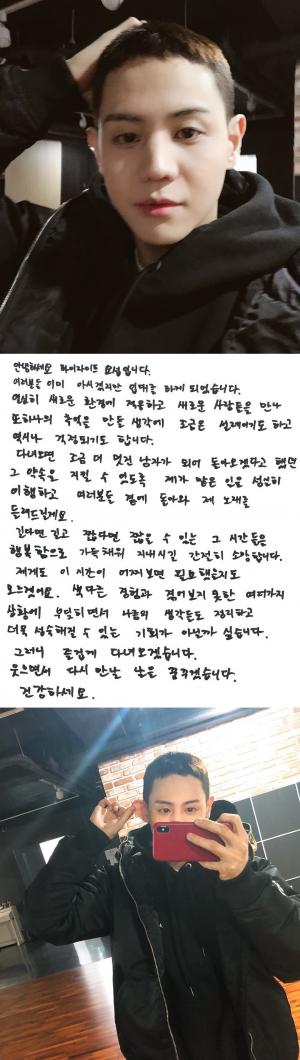 안녕하세요 하이라이트 요섭입니다.
여러분들 이미 아시겠지만 입대를 하게 되었습니다.
열심히 새로운 환경에 적응하고 새로운 사람들을 만나
또하나의 추억을 만들 생각에 조금은 설레이기도 하고
역시나 걱정되기도 합니다.
다녀오면 조금 더 멋진 남자가 되어 돌아오겠다고 했던
그 약속을 지킬 수 있도록 제가 맡은 일을 성실히
이행하고 여러분들 곁에 돌아와 제 노래를
들려드릴게요.
길다면 길고 짧다면 짧을 수 있는 그 시간들은
행복함으로 가득채워 지내시길 간절히 소망합니다.
제게도 이 시간이 어찌보면 필요했을지도
모르겠어요. 색다른 경험과 겪어보지 못한 여러가지
상황에 부딪히면서 나름의 생각들도 정리하고
더욱 성숙해질 수 있는 기회가 아닌가 싶습니다.
그러니 즐겁게 다녀오겠습니다.
웃으면서 다시 만날 날을 꿈꾸겠습니다.
건강하세요.